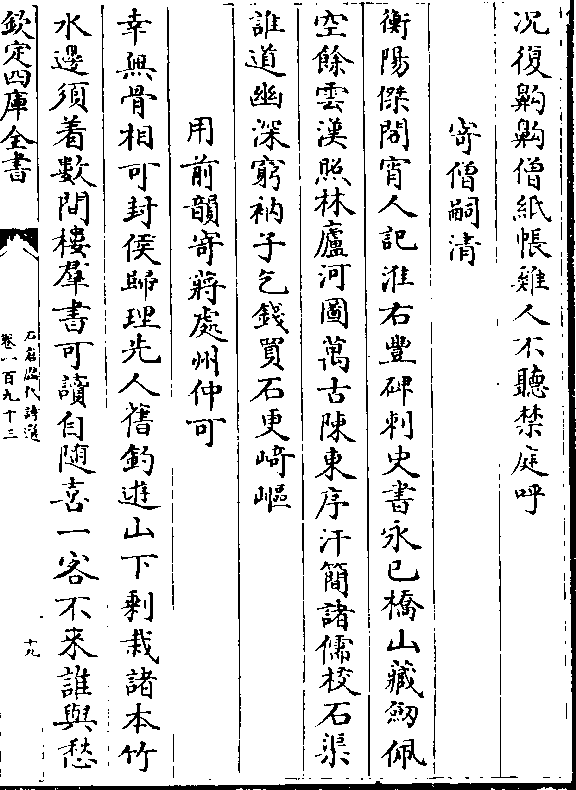 况復齁齁僧紙帳雞人不聽禁庭呼
寄僧嗣清
衡陽傑閣宵人記淮右豐碑刺史書永已橋山藏劒佩
空餘雲漢照林廬河圖萬古陳東序汗簡諸儒校石渠
誰道幽深窮衲子乞錢買石更崎嶇
用前韻寄蔣處州仲可
幸無骨相可封侯歸理先人舊釣遊山下剩栽諸本竹
水邊須着數間樓羣書可讀自隨喜一客不来誰與愁
欽定四庫全書
石倉歷代詩選
卷一百九十三
十九